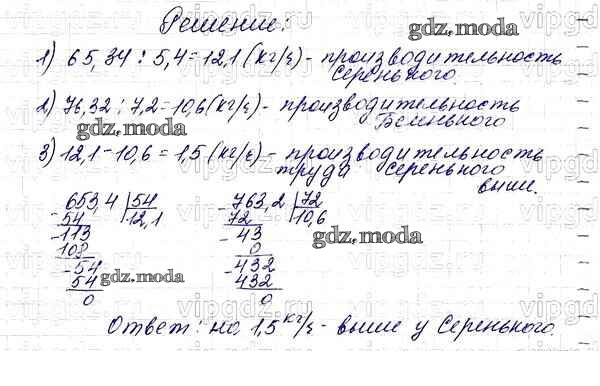 Решение:
gdz.moda
1) 65,34 : 5,4 = 12,1 (кг/г) - производительность
Серенького.
2) 76,32 : 7,2 = 10,6 (кг/г) - производительность
Беленького
gdz.moda
3) 12,1 - 10,6 = 1,5 (кг/г) - производительность
труда Серенького
выше.
653,4 | 54
- 54 12,1
- 113
108
- 54
54
0
- 763,2 | 72
72 10,6
- 43
0
- 432
432
0
gdz.moda
gdz.moda
Ответ: на 1,5 кг/г - выше у Серенького.
vipgdz